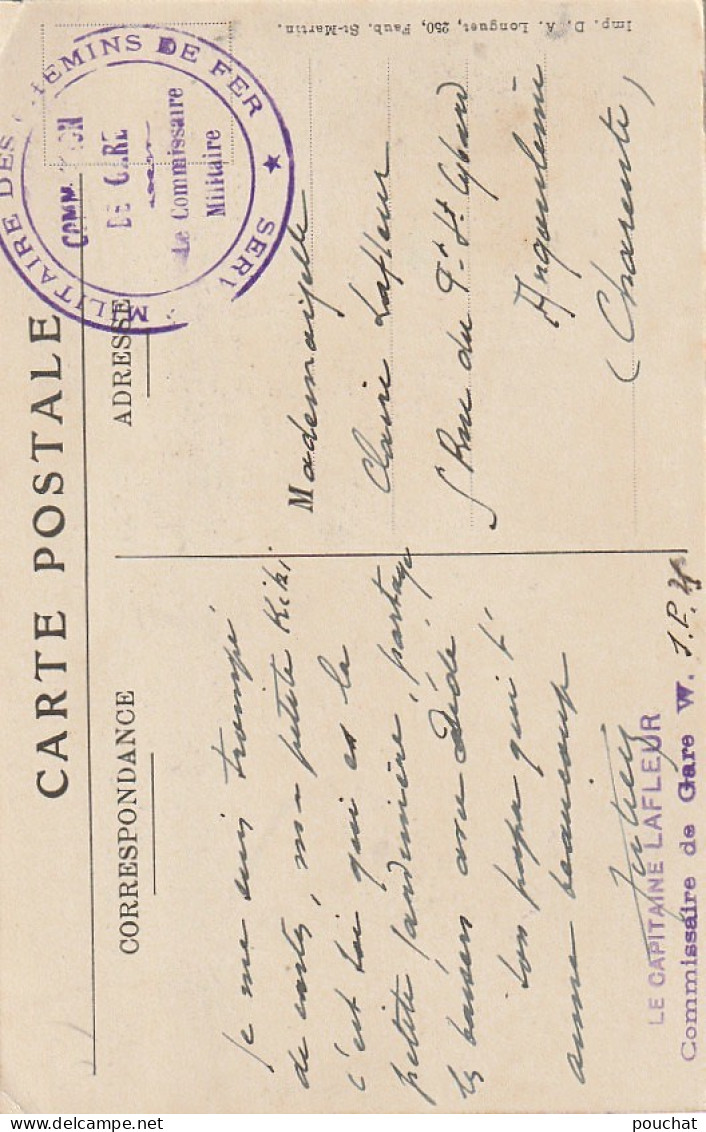 CARTE POSTALE
CORRESPONDANCE
Je me suis trompé
de carte, ma petite Kiki,
c'est toi qui es la
petite jardinière, partage
les baisers avec Dédé
ton papa qui t'
aime beaucoup
LE CAPITAINE LAFLEUR
Commissaire de Gare W. S.P. 28
ADRESSE
Mademoiselle
Claire Lafleur
Rue du Pt. St Cybard
Angoulême
(Charente)
MILITAIRE DES CHEMINS DE FER ★ SERV
COMM ION
DE GARE
Le Commissaire
Militaire
Imp. D. A. Longuet, 250, Faub. St-Martin.
pouchat